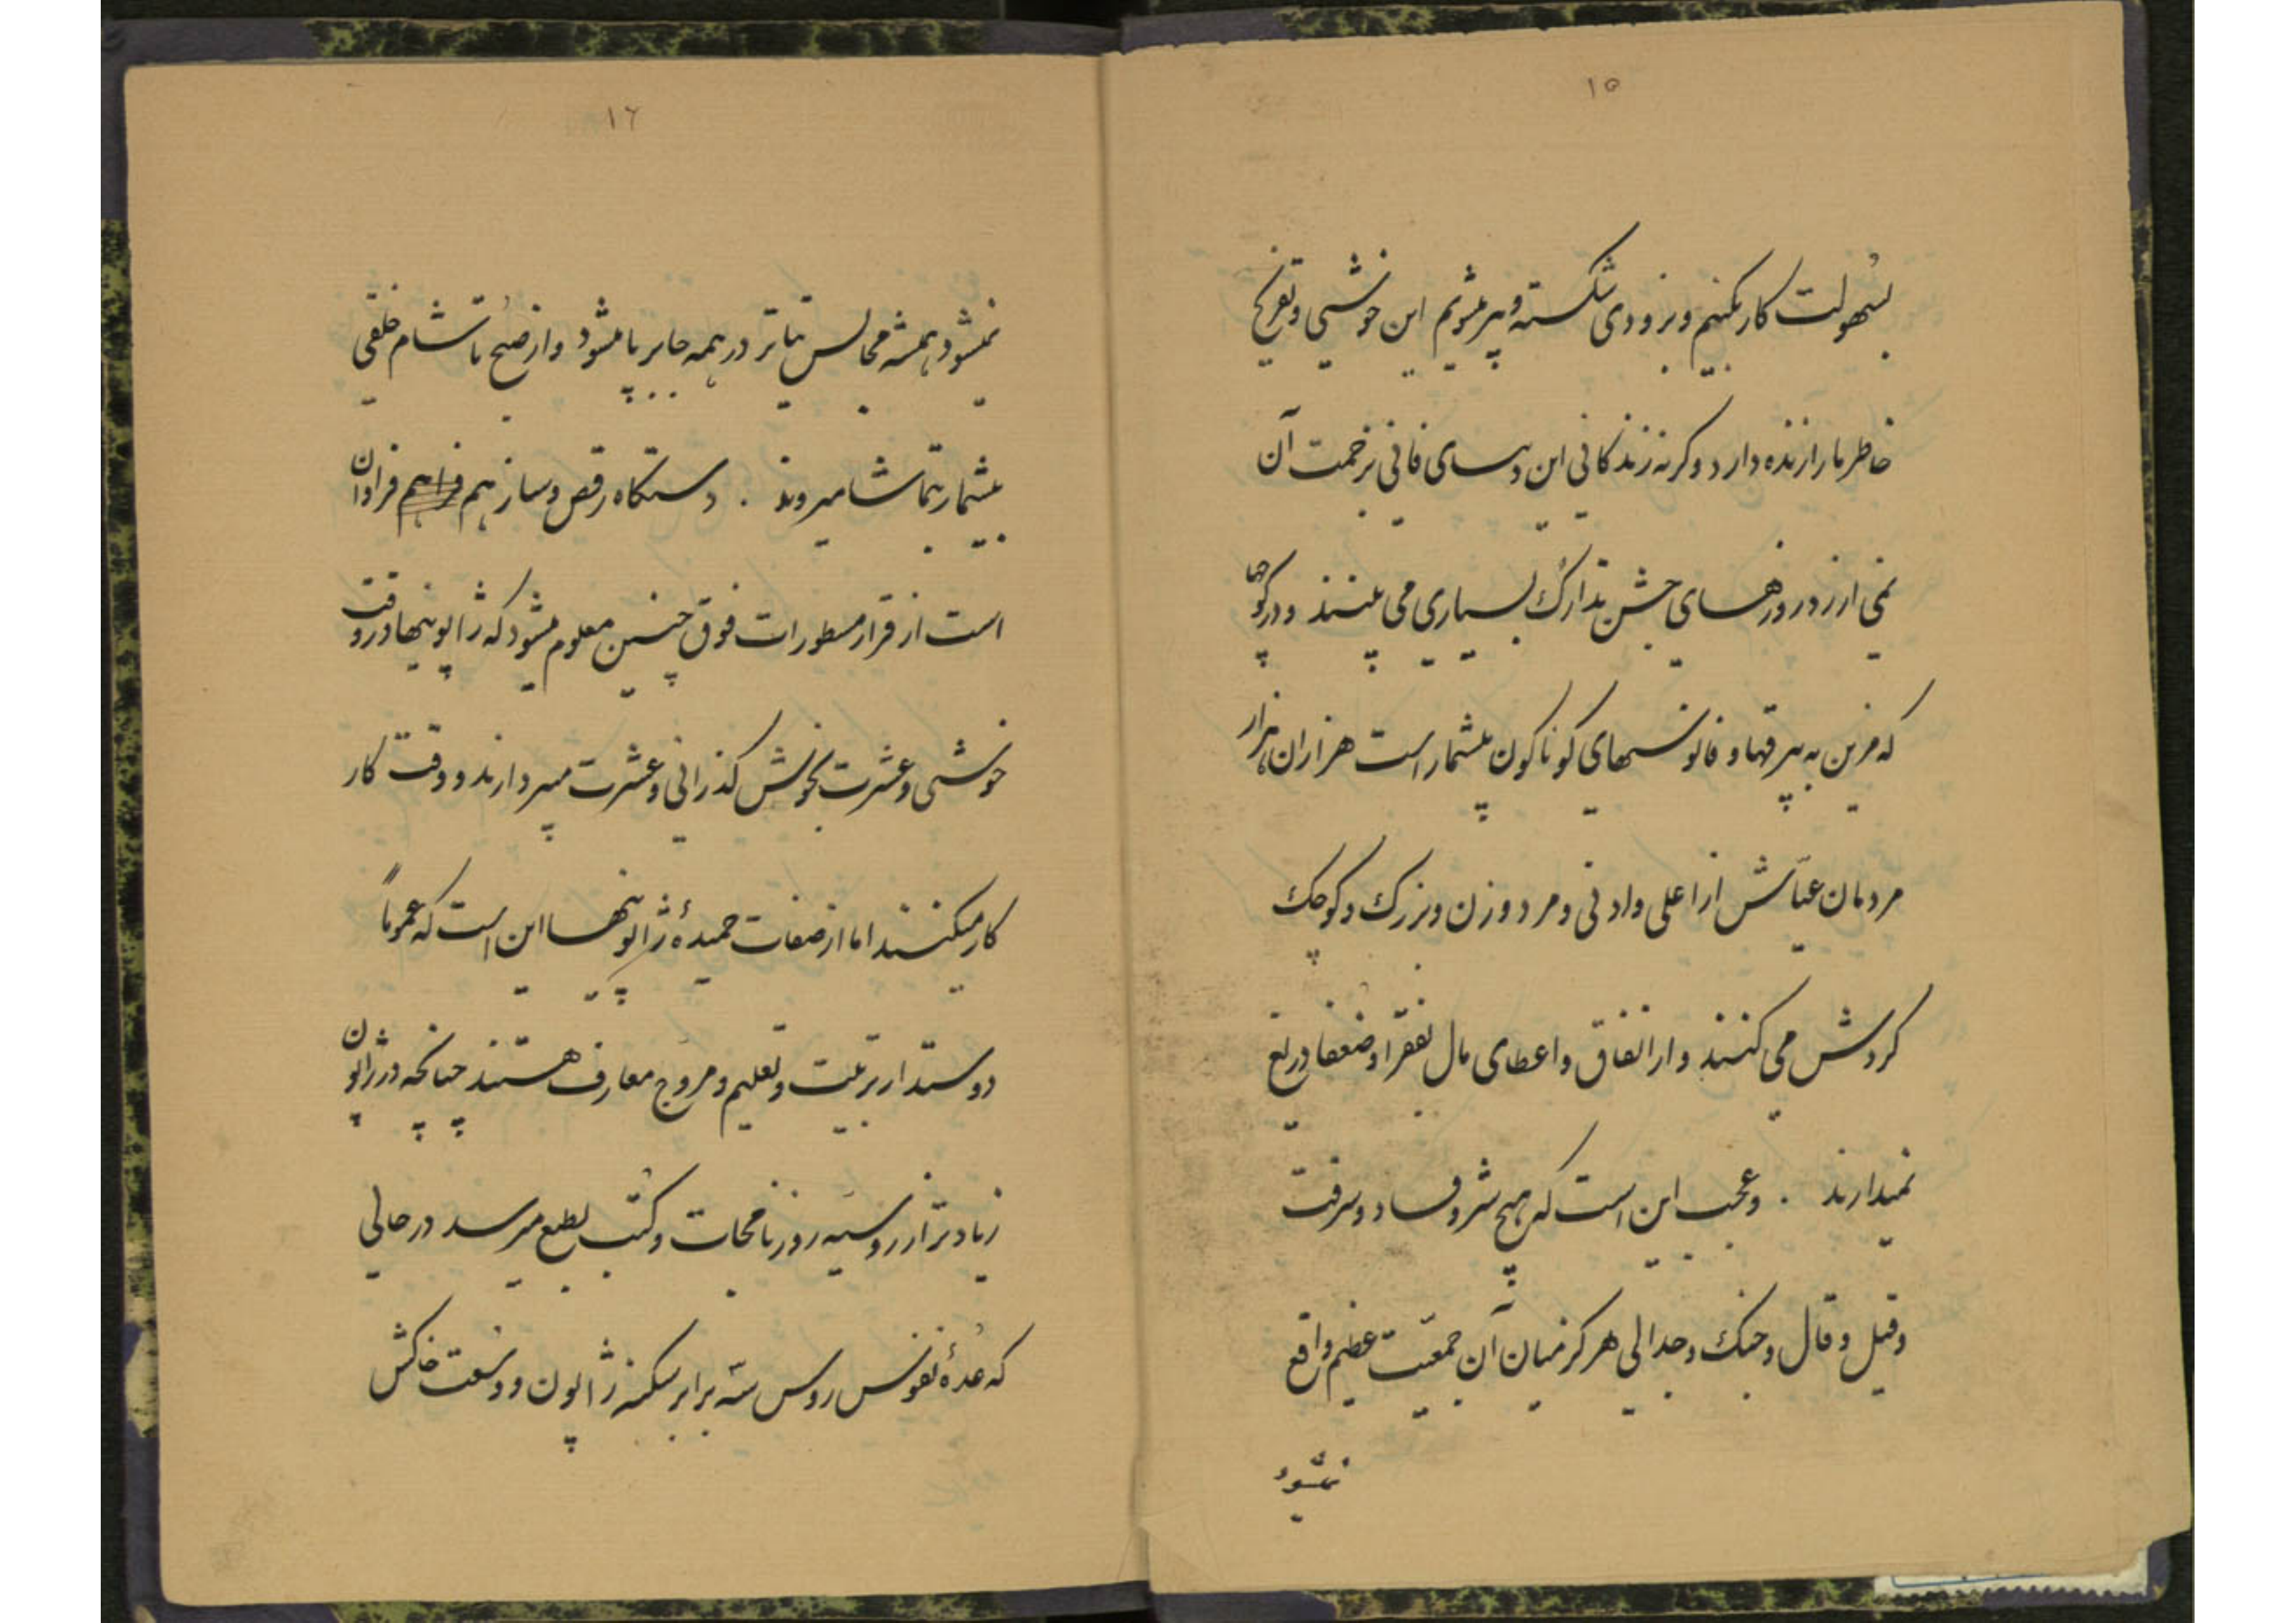 ١٥
بسهولت کار بکنیم و بزودی شکسته و پیر میشویم این خوشی و تفریح
خاطر ما را زنده دارد و کرنه زندکانی این دنیای فانی بزحمت آن
نمی ارزد در روزهای جشن تدارک بسیاری می بینند و در کوچها
که مزین به بیرقها و فانوسهای کوناکون بیشمار است هزاران هزار
مردمان عیاش از اعلی و ادنی و مرد و زن و بزرک و کوچک
کردش می کنند و از انفاق و اعطای مال بفقرا و ضعفا دریغ
نمیدارند . و عجب این است که هیچ شر و فساد و سرقت
و قیل و قال و جنک و جدالی هرکز میان آن جمعیّت عظیم واقع
نمیشود
١٦
نمیشود همیشه مجالس تیاتر در همه جا بر پا میشود و از صبح تا شام خلقی
بیشمار بتماشا میروند . دستکاه رقص و ساز هم فراهم فراوان
است از قرار مسطورات فوق چنین معلوم میشود که ژاپونیها در وقت
خوشی و عشرت بخوش کذرانی و عشرت میپردازند و وقت کار
کار میکنند اما از صفات حمیدهٔ ژاپونیها این است که عموماً
دوستدار تربیت و تعلیم و مروج معارف هستند چنانچه در ژاپون
زیادتر از روسیه روزنامجات و کتب بطبع میرسد در حالی
که عدهٔ نفوس روس سه برابر سکنه ژاپون و وسعت خاکش